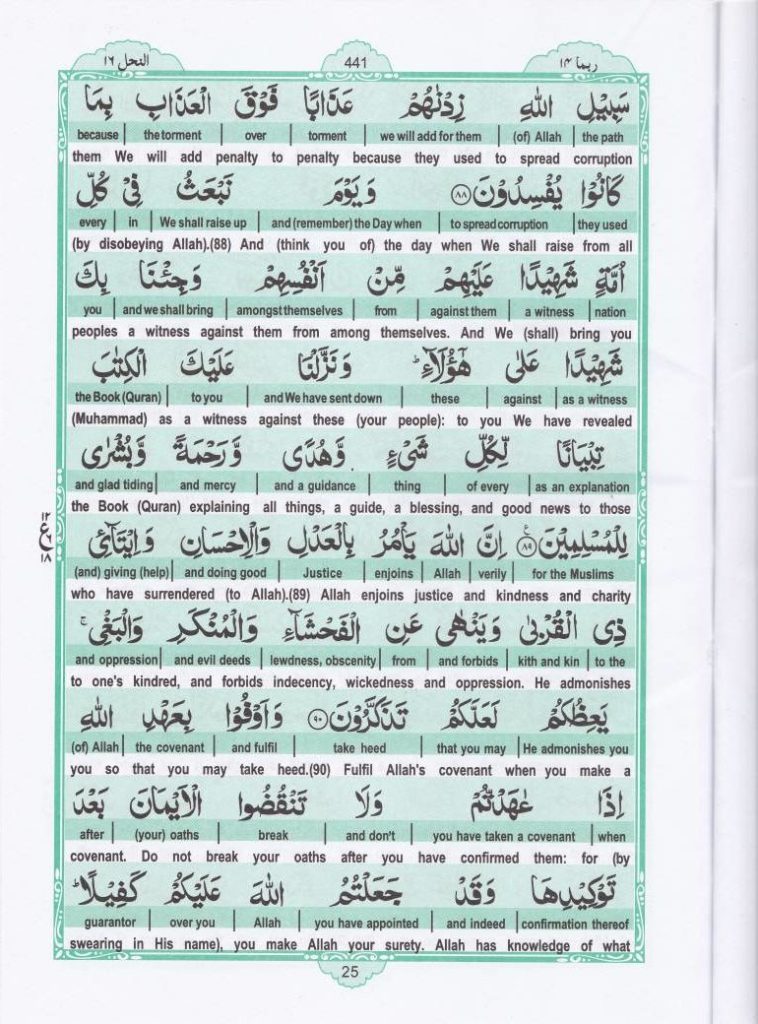 النحل ١٦ 441 ربما ١٤
سَبِيْلِ اللّٰهِ زِدْنٰهُمْ عَذَابًا فَوْقَ الْعَذَابِ بِمَا
because | the torment | over | torment | we will add for them | (of) Allah | the path
them We will add penalty to penalty because they used to spread corruption
كَانُوْا يُفْسِدُوْنَ ﴿٨٨﴾ وَيَوْمَ نَبْعَثُ فِيْ كُلِّ
every | in | We shall raise up | and (remember) the Day when | to spread corruption | they used
(by disobeying Allah).(88) And (think you of) the day when We shall raise from all
اُمَّةٍ شَهِيْدًا عَلَيْهِمْ مِّنْ اَنْفُسِهِمْ وَجِئْنَا بِكَ
you | and we shall bring | amongst themselves | from | against them | a witness | nation
peoples a witness against them from among themselves. And We (shall) bring you
شَهِيْدًا عَلٰى هٰٓؤُلَآءِ ؕ وَنَزَّلْنَا عَلَيْكَ الْكِتٰبَ
the Book (Quran) | to you | and We have sent down | these | against | as a witness
(Muhammad) as a witness against these (your people): to you We have revealed
تِبْيَانًا لِّكُلِّ شَيْءٍ وَّهُدًى وَّرَحْمَةً وَّبُشْرٰى
and glad tiding | and mercy | and a guidance | thing | of every | as an explanation
the Book (Quran) explaining all things, a guide, a blessing, and good news to those
لِلْمُسْلِمِيْنَ ﴿٨٩﴾ اِنَّ اللّٰهَ يَاْمُرُ بِالْعَدْلِ وَالْاِحْسَانِ وَاِيْتَآئِ
(and) giving (help) | and doing good | Justice | enjoins | Allah | verily | for the Muslims
١٢ ع ١٨
who have surrendered (to Allah).(89) Allah enjoins justice and kindness and charity
ذِي الْقُرْبٰى وَيَنْهٰى عَنِ الْفَحْشَآءِ وَالْمُنْكَرِ وَالْبَغْيِ ۚ
and oppression | and evil deeds | lewdness, obscenity | from | and forbids | kith and kin | to the
to one's kindred, and forbids indecency, wickedness and oppression. He admonishes
يَعِظُكُمْ لَعَلَّكُمْ تَذَكَّرُوْنَ ﴿٩٠﴾ وَاَوْفُوْا بِعَهْدِ اللّٰهِ
(of) Allah | the covenant | and fulfil | take heed | that you may | He admonishes you
you so that you may take heed.(90) Fulfil Allah's covenant when you make a
اِذَا عٰهَدْتُّمْ وَلَا تَنْقُضُوا الْاَيْمَانَ بَعْدَ
after | (your) oaths | break | and don't | you have taken a covenant | when
covenant. Do not break your oaths after you have confirmed them: for (by
تَوْكِيْدِهَا وَقَدْ جَعَلْتُمُ اللّٰهَ عَلَيْكُمْ كَفِيْلًا ؕ
guarantor | over you | Allah | you have appointed | and indeed | confirmation thereof
swearing in His name), you make Allah your surety. Allah has knowledge of what
25